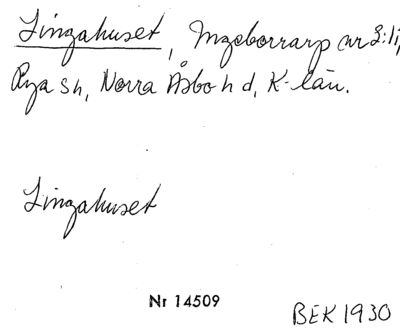 Lingahuset, Ingeborrarp nr 2:11,
Rya sn, Norra Åsbo hd, K-län.
Lingahuset
Nr 14509
BEK 1930